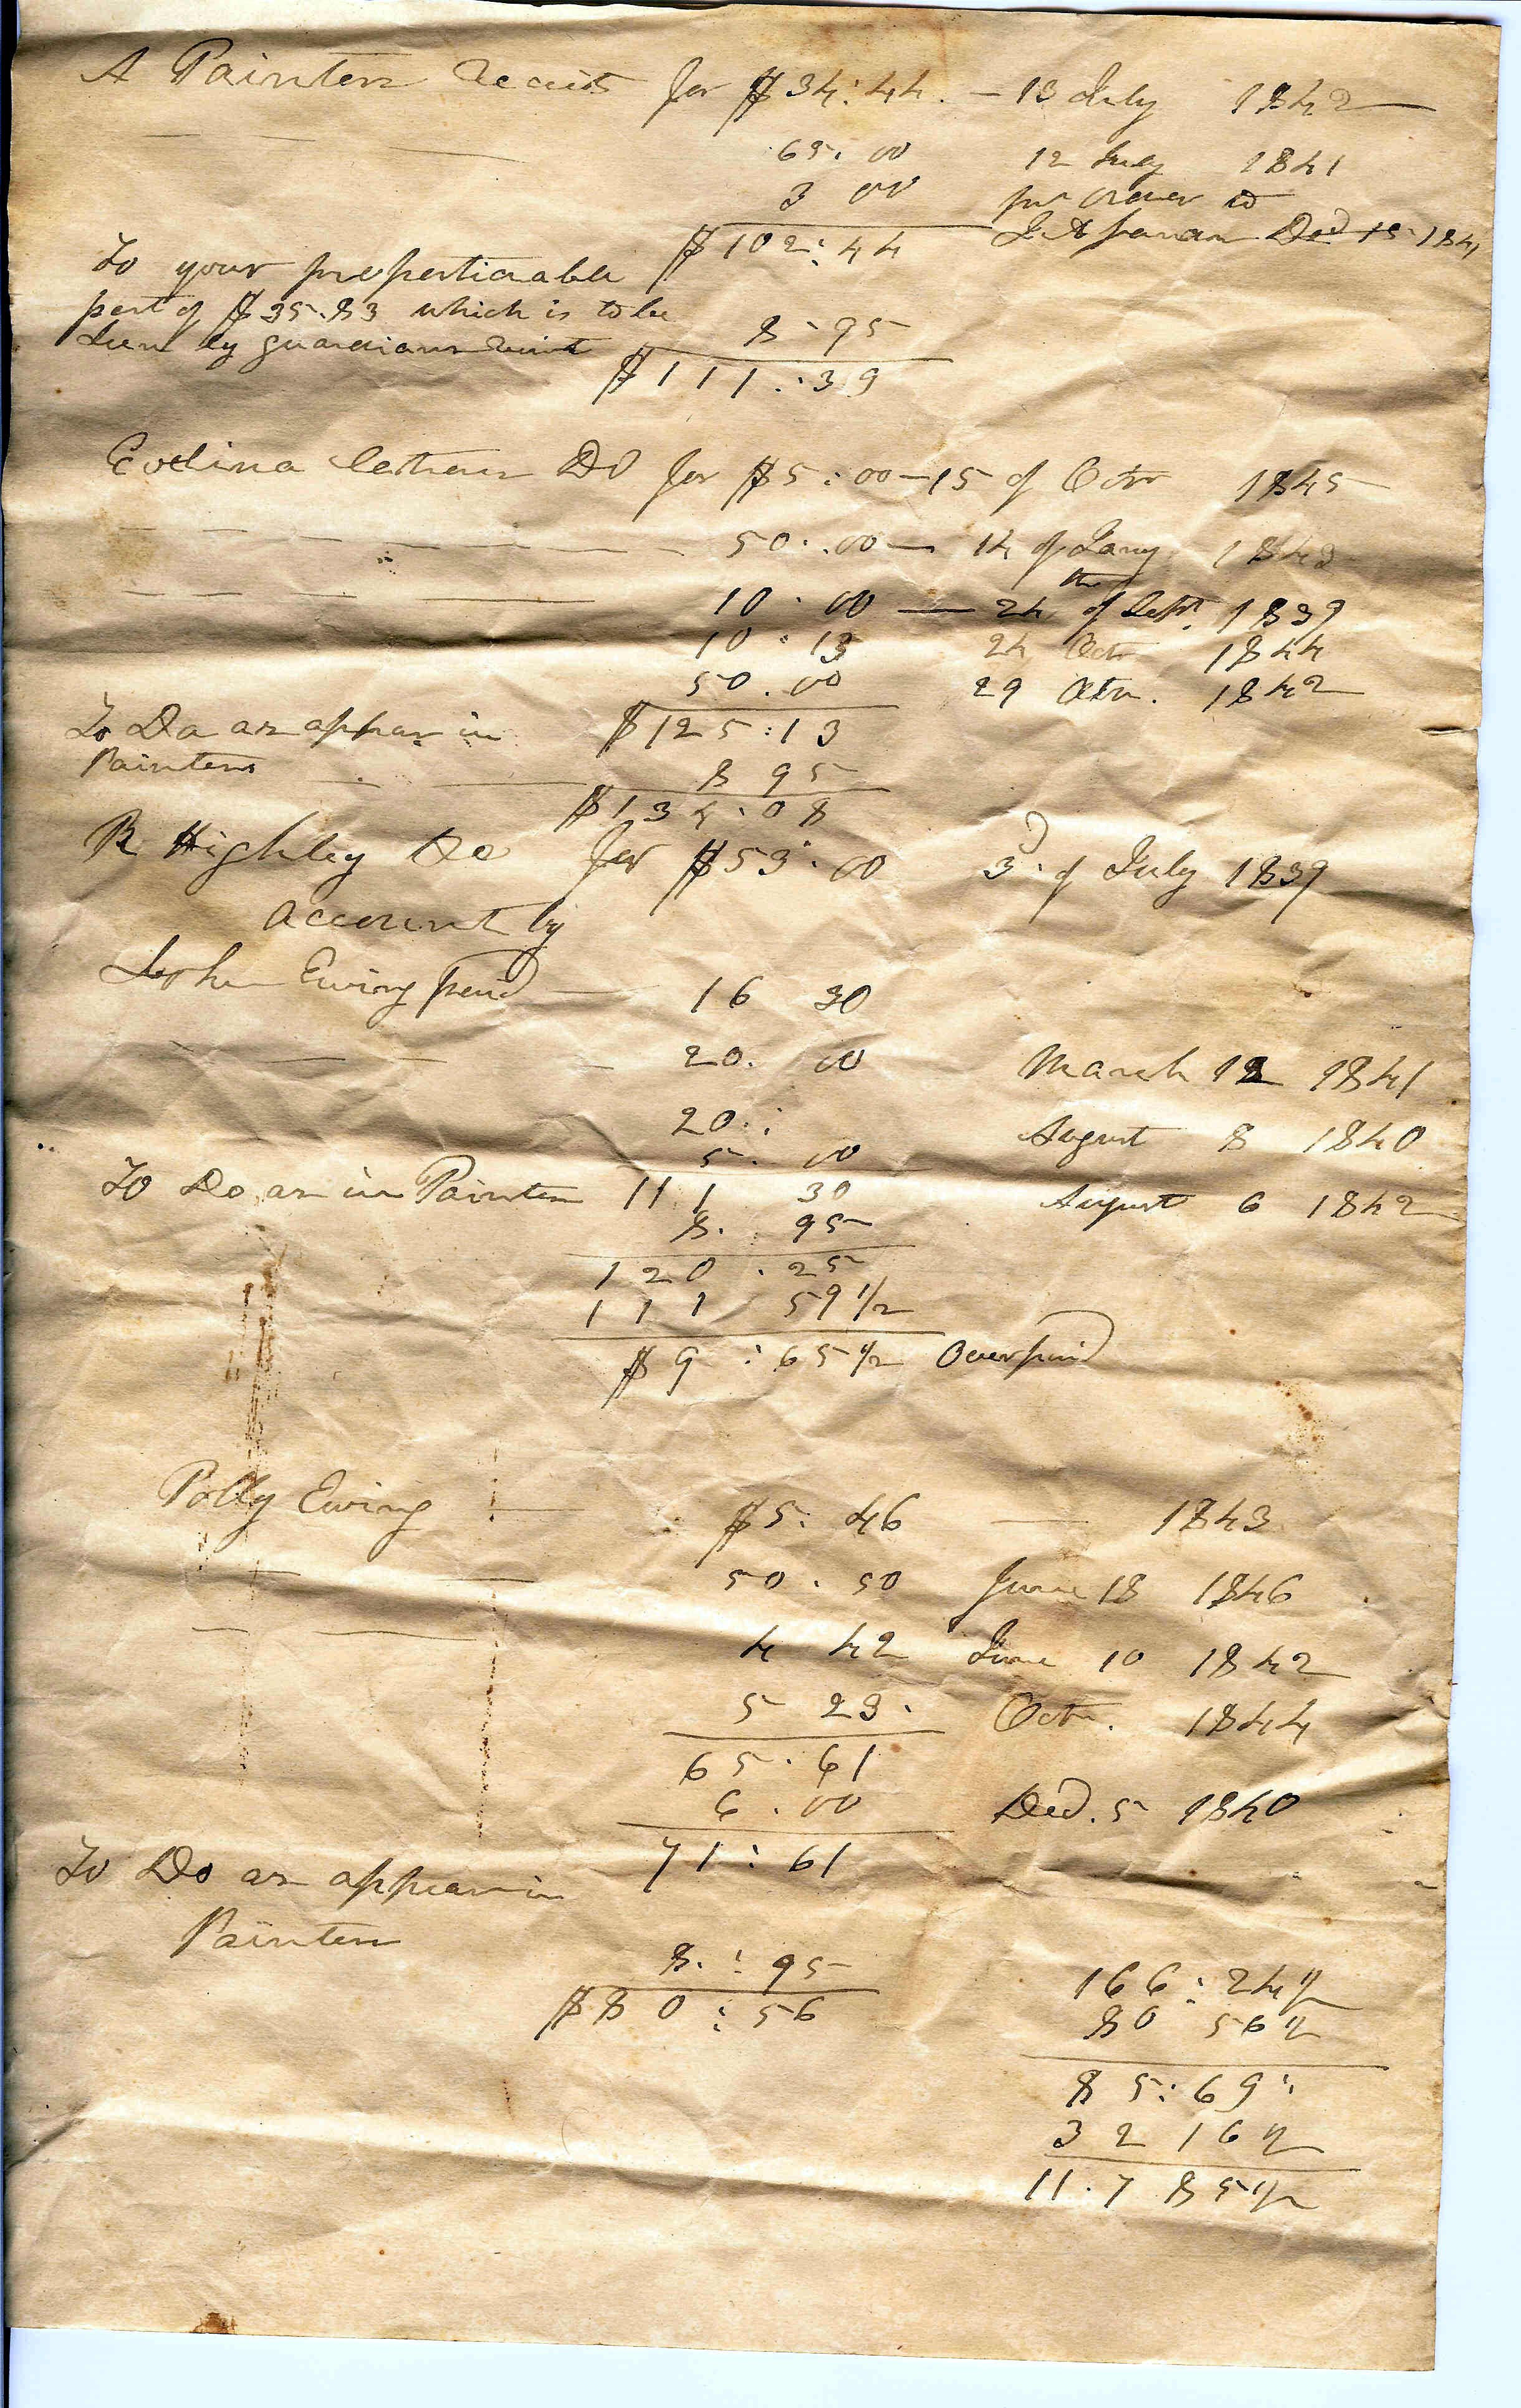 A Painters Receits for $34:44. – 13 July 1842
65. 00 12 July 1841
3 00 per order to
$102:44 Decd 15 1841
To your propertionable
part of $35.83 which is to be
seen by guardians
8-95
$111:39
Evelina Do for $5:00 – 15 of Octr 1845
50:.00 – 14 of Jany 1843
10:00 — 24 th of Sept. 1839
10:13 24 Octr 1844
50.00 29 Octr. 1842
To Do as appear in $125:13
Painters 8 95
$134:08
R Highley Do for $53:00 3d. of July 1839
account by
John Ewing paid — 16 30
20. 00 March 12 1841
20.: August 8 1840
5. 00
To Do as in Painters 111 30 August 6 1842
8. 95
120.25
111 59 1/2
$9:65 1/2 Overpaid
Polly Ewing — $5:46 — 1843
50.50 June 18 1846
4 42 June 10 1842
5 23. Octr. 1844
65.61
6.00 Decd. 5 1840
71:61
To Do as appear in
Painters
8.:95 166:24 1/2
$80:56 80 56 1/2
85:69:
32 16 1/2
11.7 85 1/2